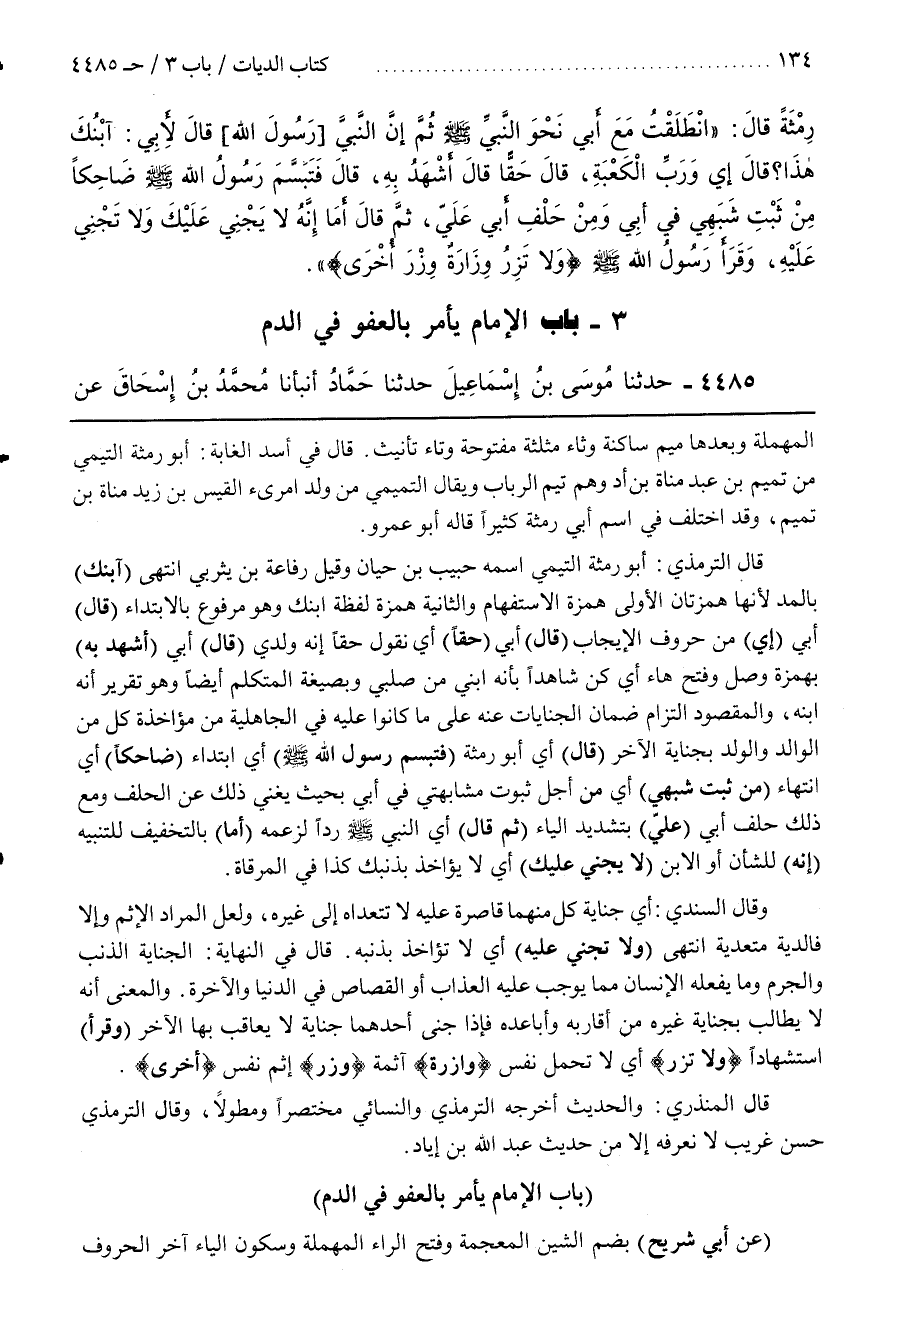 ١٣٤ ........................................ كتاب الديات / باب ٣ / حـ ٤٤٨٥
رِمْثَةً قالَ: «انْطَلَقْتُ مَعَ أَبي نَحْوَ النَّبيِّ ﷺ ثُمَّ إنَّ النَّبيَّ [رَسُولَ الله] قالَ لأَبِي: آبْنُكَ
هٰذَا؟ قالَ إي وَرَبِّ الْكَعْبَةِ، قالَ حَقًّا قالَ أَشْهَدُ بِهِ، قالَ فَتَبَسَّمَ رَسُولُ الله ﷺ ضَاحِكاً
مِنْ ثَبْتِ شَبَهِي في أَبِي وَمِنْ حَلْفِ أَبي عَلَيّ، ثمَّ قالَ أَمَا إِنَّهُ لا يَجْنِي عَلَيْكَ وَلا تَجْنِي
عَلَيْهِ، وَقَرَأَ رَسُولُ الله ﷺ ﴿وَلا تَزِرُ وِزَارَةٌ وِزْرَ أُخْرَى﴾».
٣ ـ باب الإمام يأمر بالعفو في الدم
٤٤٨٥ ـ حدثنا مُوسَى بنُ إِسْمَاعِيلَ حدثنا حَمَّادُ أنبأنا مُحمَّدُ بنُ إِسْحَاقَ عن
المهملة وبعدها ميم ساكنة وثاء مثلثة مفتوحة وتاء تأنيث. قال في أسد الغابة: أبو رمثة التيمي
من تميم بن عبد مناة بن أد وهم تيم الرباب ويقال التميمي من ولد امرىء القيس بن زيد مناة بن
تميم، وقد اختلف في اسم أبي رمثة كثيراً قاله أبو عمرو.
قال الترمذي: أبو رمثة التيمي اسمه حبيب بن حيان وقيل رفاعة بن يثربي انتهى (آبنك)
بالمد لأنها همزتان الأولى همزة الاستفهام والثانية همزة لفظة ابنك وهو مرفوع بالابتداء (قال)
أبي (إي) من حروف الإيجاب (قال) أبي (حقاً) أي نقول حقاً إنه ولدي (قال) أبي (أشهد به)
بهمزة وصل وفتح هاء أي كن شاهداً بأنه ابني من صلبي وبصيغة المتكلم أيضاً وهو تقرير أنه
ابنه، والمقصود التزام ضمان الجنايات عنه على ما كانوا عليه في الجاهلية من مؤاخذة كل من
الوالد والولد بجناية الآخر (قال) أي أبو رمثة (فتبسم رسول الله ﷺ) أي ابتداء (ضاحكاً) أي
انتهاء (من ثبت شبهي) أي من أجل ثبوت مشابهتي في أبي بحيث يغني ذلك عن الحلف ومع
ذلك حلف أبي (عليّ) بتشديد الياء (ثم قال) أي النبي ﷺ رداً لزعمه (أما) بالتخفيف للتنبيه
(إنه) للشأن أو الابن (لا يجني عليك) أي لا يؤاخذ بذنبك كذا في المرقاة.
وقال السندي: أي جناية كل منهما قاصرة عليه لا تتعداه إلى غيره، ولعل المراد الإثم وإلا
فالدية متعدية انتهى (ولا تجني عليه) أي لا تؤاخذ بذنبه. قال في النهاية: الجناية الذنب
والجرم وما يفعله الإنسان مما يوجب عليه العذاب أو القصاص في الدنيا والآخرة. والمعنى أنه
لا يطالب بجناية غيره من أقاربه وأباعده فإذا جنى أحدهما جناية لا يعاقب بها الآخر (وقرأ)
استشهاداً ﴿ولا تزر﴾ أي لا تحمل نفس ﴿وازرة﴾ آثمة ﴿وزر﴾ إثم نفس ﴿أخرى﴾.
قال المنذري: والحديث أخرجه الترمذي والنسائي مختصراً ومطولاً، وقال الترمذي
حسن غريب لا نعرفه إلا من حديث عبد الله بن إياد.
(باب الإمام يأمر بالعفو في الدم)
(عن أبي شريح) بضم الشين المعجمة وفتح الراء المهملة وسكون الياء آخر الحروف